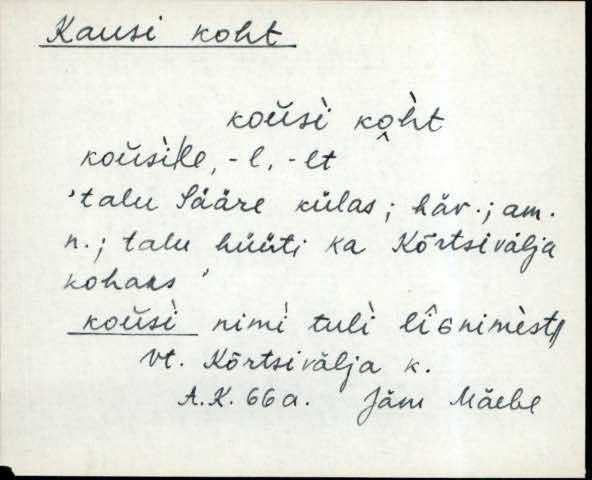 Kausi koht
koŭsì ko͔̭h̀t
koŭsìlle, -l, -lt
'talu Sääre külas; häv.; am.
n.; talu hüüti ka Kõrtsivälja
kohaks'
koŭsì nimì tulì lîɢnimèst
vt. Kõrtsivälja k.
A.K. 66a. Jäm Mäebe